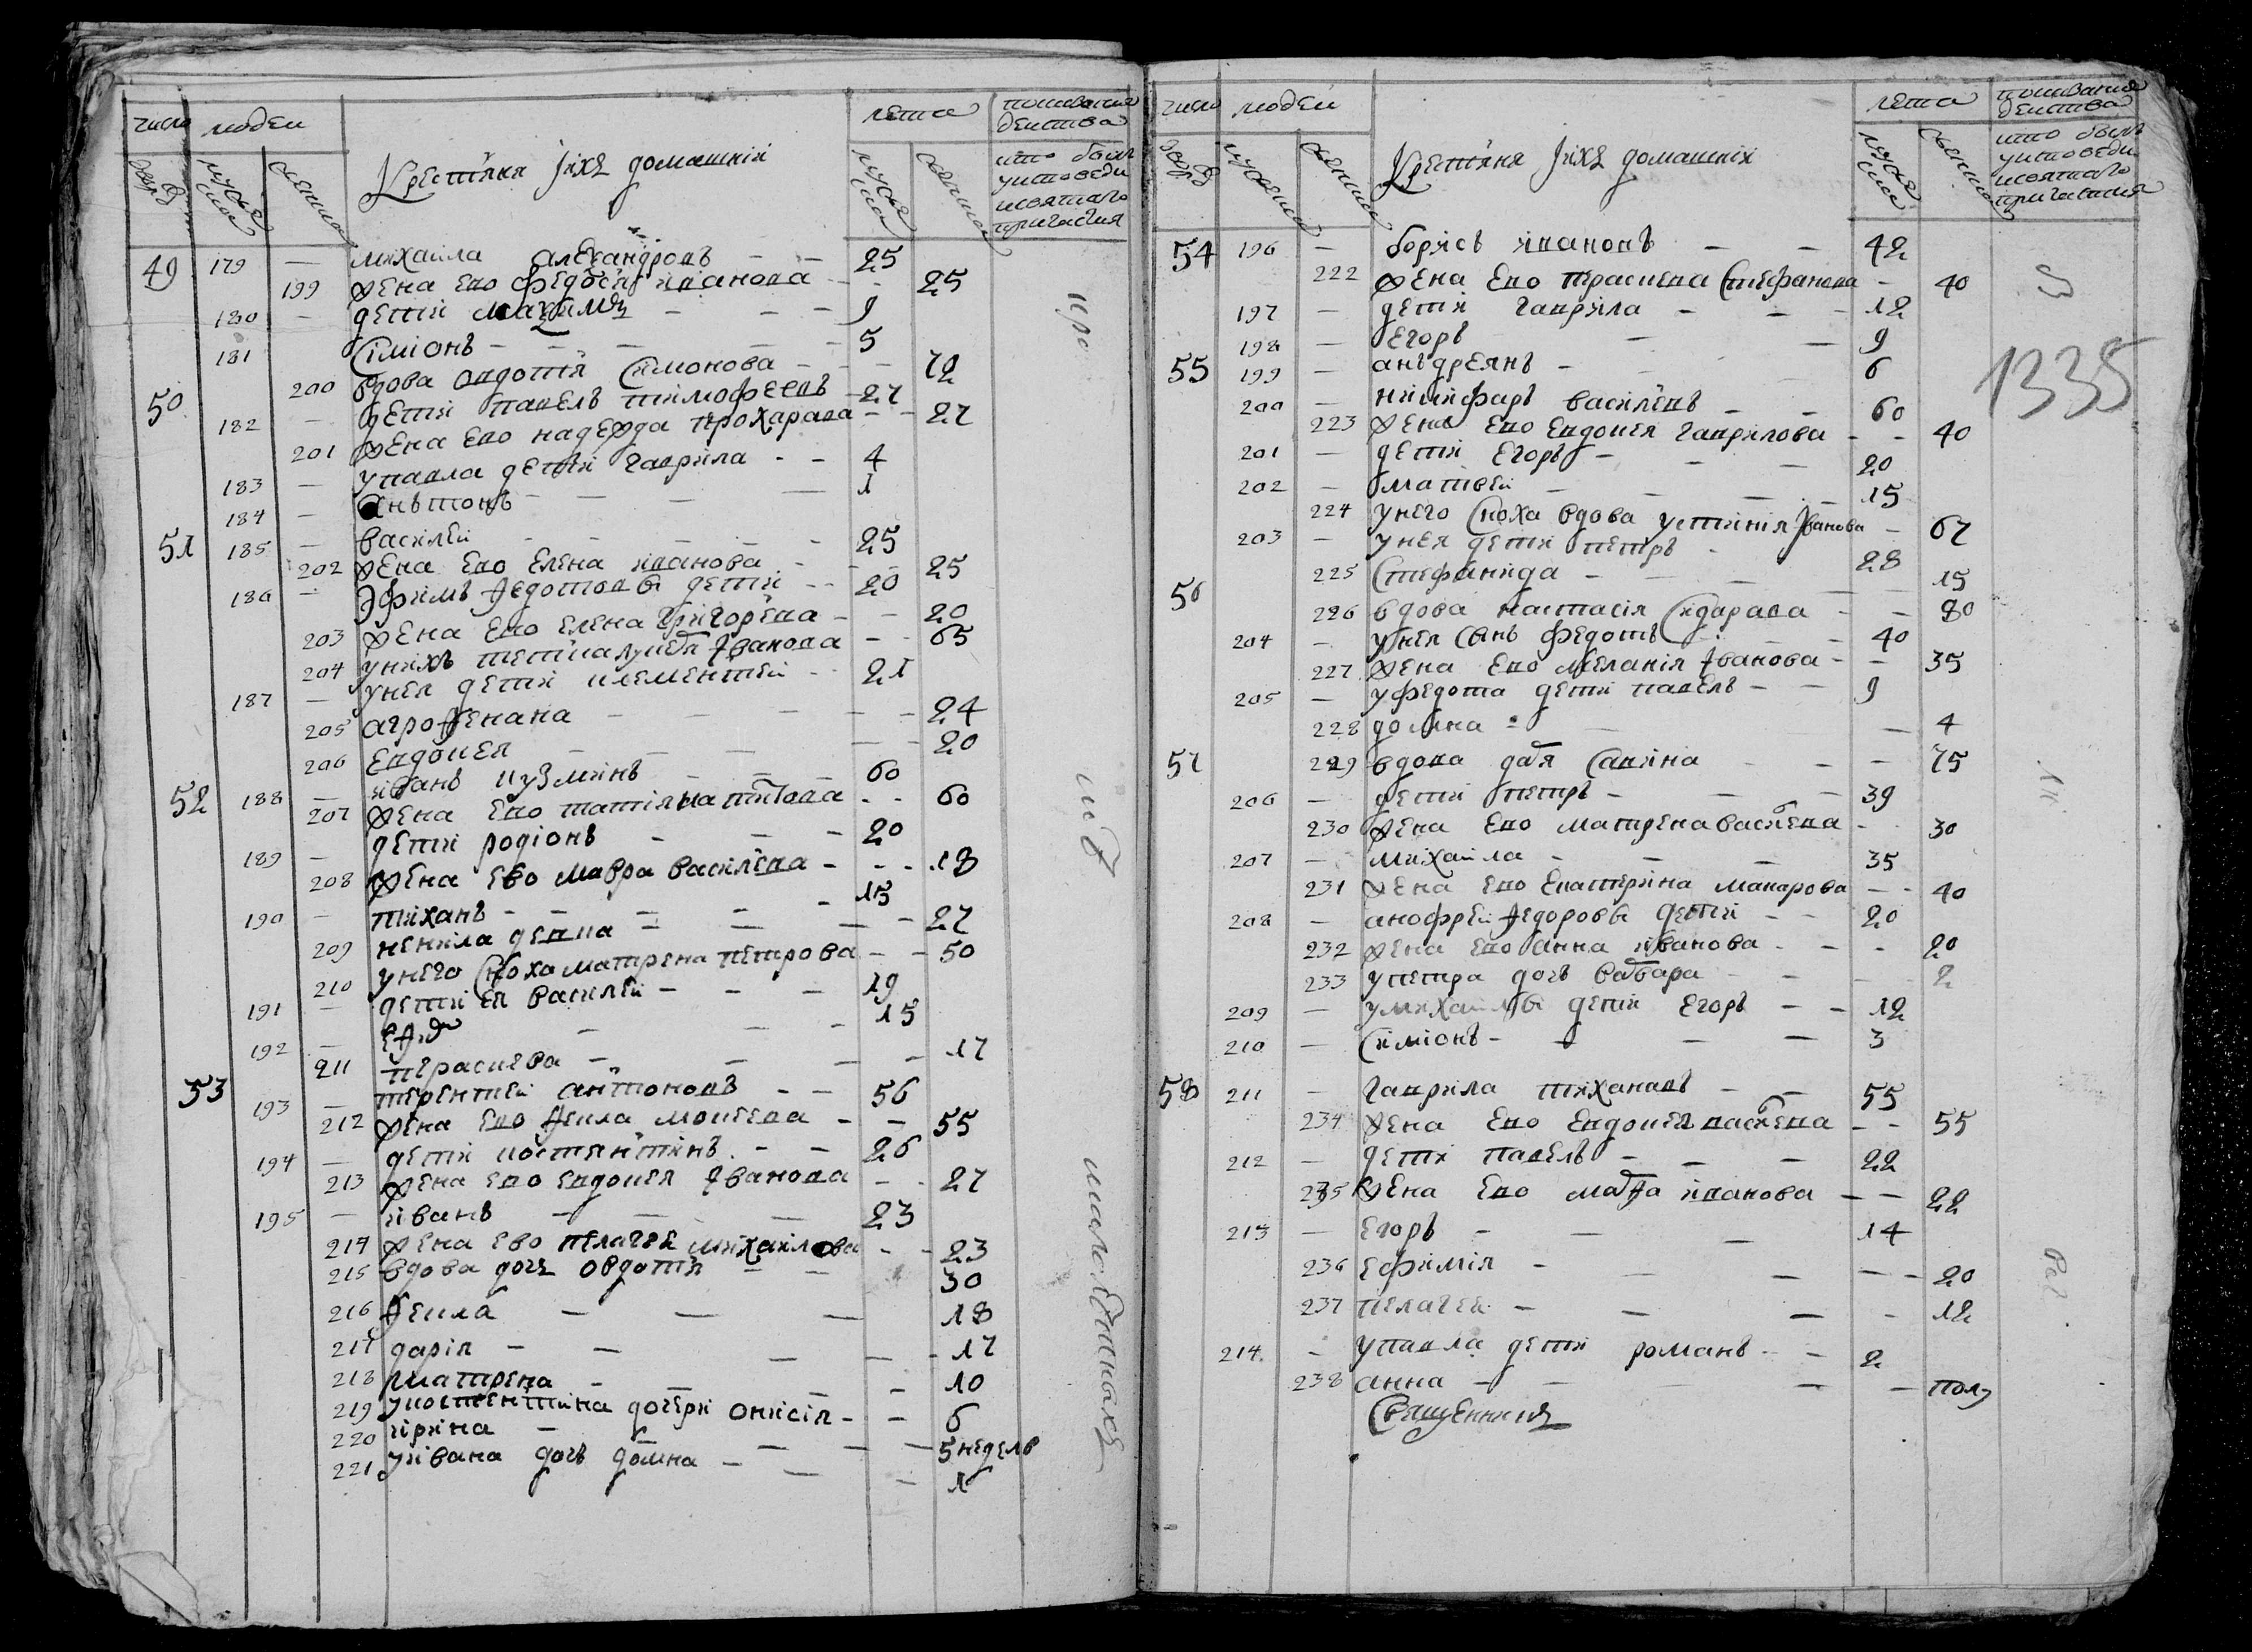 число людеи лета
дворо муже ска женска Крестьяня Iихъ домашнiи муже ска женска
49 179 — михаила алеѯандровъ — — 25
199 жена ево федосья ивановa — 25
180 — дети маѯимъ — — 9
181 Симионъ — — 5
50 200 вдова авдотья Симонова — — 72
182 — дети павелъ тимофеевъ — 27
201 жена ево надежда прохарава — 27
183 — упавла дети гаврила — — 4
184 — Анътонъ — — 1
51 185 — василеи — — 25
202 жена ево елена иванова — — 25
186 — Ефимъ Федотовы дети — — 20
203 жена ево елена Григорева — — 20
204 унихъ Iванова — — 65
187 — унея дети климентеи — 21
205 агрофенана — — 24
206 Евдокея — — 20
52 188 — иванъ кузминъ — — 60
207 жена ево татияна титова — — 60
189 — дети родiонъ — — 20
208 жена ево мавра василева — — 18
190 — тиханъ — — 15
209 ненила девка — — 27
210 унего сноха матрена петрова — — 50
191 — дети ея василеи — — 19
192 — — 15
211 Параскева — — 17
53 193 — терентеи антоновъ — — 56
212 жена ево Фекла мосеева — — 55
194 — дети костянтинъ — — 26
213 жена ево евдокея Iванова — — 27
195 — иванъ — — 23
214 жена ево пелагея михаилова — — 23
215 вдова дочь овдотья — — 30
216 Фекла — — 18
217 дарiя — — 17
218 матрена — — 10
219 укостентина дочери онисiя — — 6
220 ирина — — 5 неделъ
221 уивана дочь домна — — 1
число людеи лета
дворо мужеска женска Крестьяня Iихъ домашнiи муже ска женска
54 196 — борисъ ивановъ — — 42
222 жена ево параскева Стефанова — 40
197 — дети гаврила — — 12
198 — Егоръ — — 9
199 — анъдреянъ — — 6
55 200 — никифаръ василевъ — — 60
223 жена ево евдокея гаврилова — — 40
201 — дети егоръ — — 20
202 — матвеи — — 15
224 унего сноха вдова устинiя Iванова — 67
203 — унея дети петръ — 28
225 Стефанида — — 15
56 226 вдова настасiя Сидарава — — 80
204 — унея сынъ федотъ — — 40
227 жена ево меланiя Iванова — — 35
205 — уфедота дети павелъ — — 9
228 домна — — 4
57 229 вдова дарья Савина — — 75
206 — дети петръ — — 39
230 жена ево матрена василева — 30
207 — михаила — — 35
231 жена ево екатерина макарова — — 40
208 — анофреи Федоровы дети — — 20
232 жена ево анна иванова — — 20
233 упетра дочь варвара — — 2
209 — умихаилы дети егоръ — — 12
210 — Симiонъ — — 3
58 211 — гаврила тихановъ — — 55
234 жена ево евдокея василева — — 55
212 — дети павелъ — — 22
235 жена ево марфа иванова — — 22
213 — егоръ — — 14
236 ефимiя — — 20
237 пелагея — — 12
214 — упавла дети романъ — — 2
238 анна — — полу
Священникъ
1335